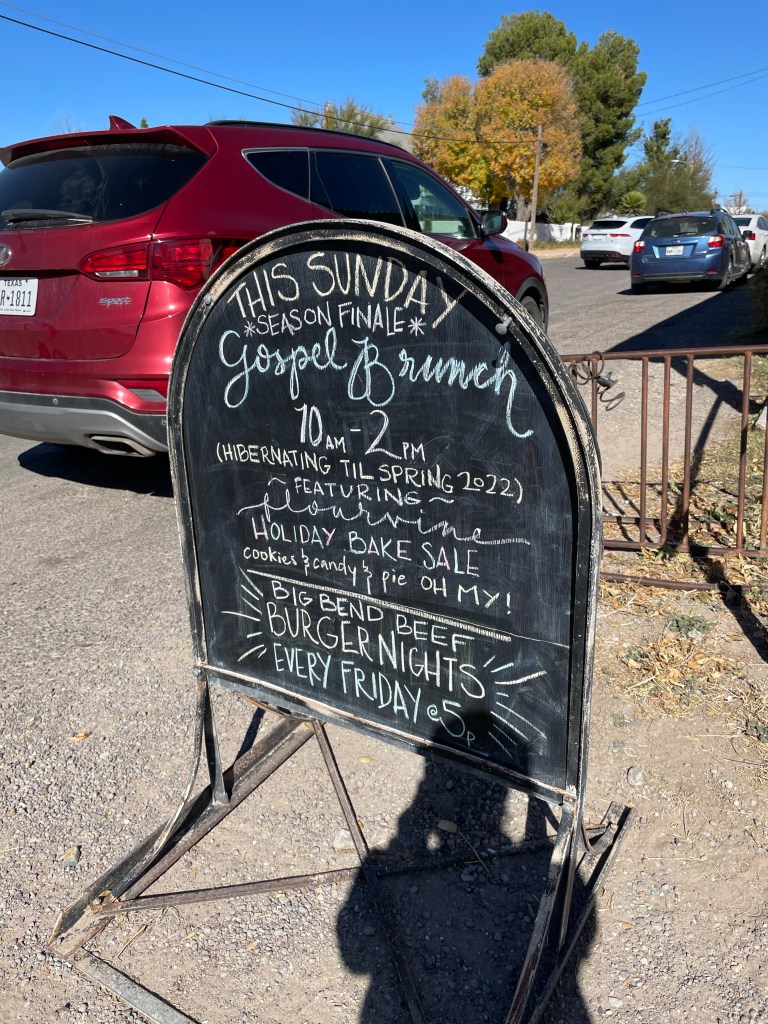 THIS SUNDAY
*SEASON FINALE*
Gospel Brunch
10AM-2PM
(HIBERNATING TIL SPRING 2022)
~FEATURING~
flourvine
HOLIDAY BAKE SALE
cookies & candy & pie OH MY!
BIG BEND BEEF
BURGER NIGHTS
EVERY FRIDAY @5P
TEXAS
R★1811
SPORT